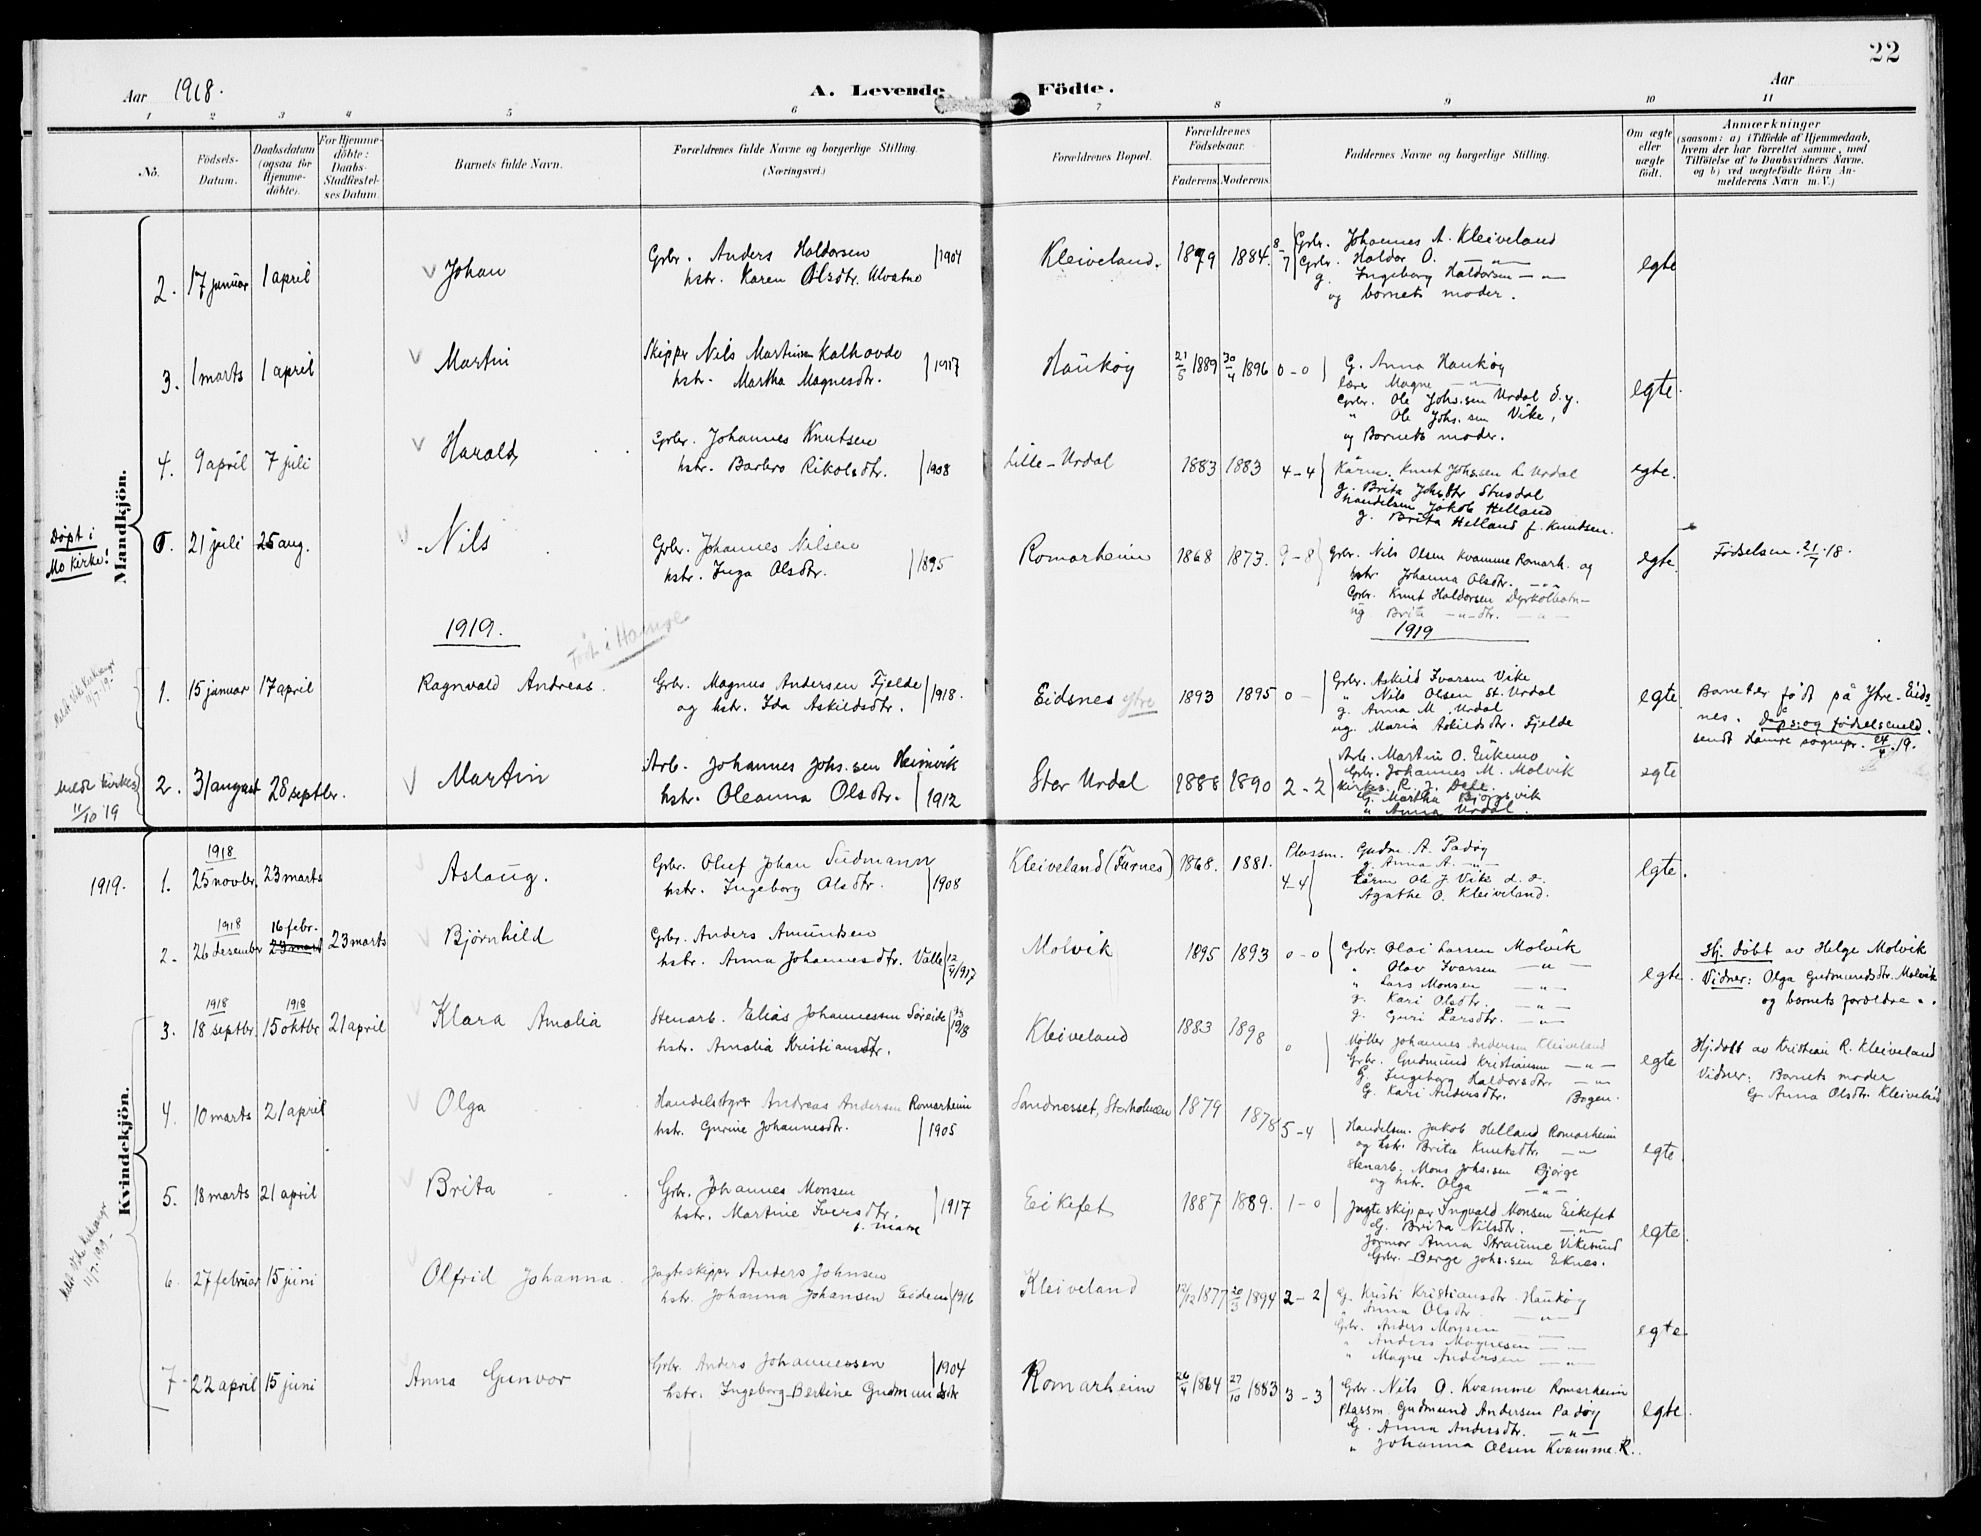 22
Aar 1918.
A. Levende Födte.
Aar
1 2 3 4 5 6 7 8 9 10 11
No.
Födsels-Datum.
Daabsdatum (ogsaa for Hjemme-döbte).
For Hjemme-döbte: Daabs-Stadfæstel-ses Datum.
Barnets fulde Navn.
Forældrenes fulde Navne og borgerlige Stilling. (Næringsvei.)
Forældrenes Bopæl.
Forældrenes Födselsaar.
Faderens Moderens
Faddernes Navne og borgerlige Stilling.
Om ægte eller uægte födt.
Anmærkninger
(saasom: a) i Tilfælde af Hjemmedaab,
hvem der har forrettet samme, med
Tilföielse af to Daabsvidners Navne,
og b) ved uægtefödte Börn An-
melderens Navn m. V.)
Mandkjön.
2. 17 januar 1 april Johan
Gbr. Anders Haldorsen
hstr. Karen Olsdtr. Ulvatne 1904
Kleiveland. 1879 1884. 8-7
Gbr. Johannes A. Kleiveland
Gbr. Haldor O. — " —
g. Ingeborg Haldorsen — " —
og barnets moder.
egte
3. 1 marts 1 april Martin
Skipper Nils Martinsen Kalhovde
hstr. Martha Magnesdtr. 1917
Haukøy 21/5 1889 30/4 1896 0-0
G. Anna Haukøy
lærer Magne — " —
Gbr. Ole Johs.sen Urdal d.y.
" Ole Johs.sen Vike,
og Barnets moder.
egte.
4. 9 april 7 juli Harald
Gbr. Johannes Knutsen
hstr. Barbro Rikolsdtr. 1908
Lille-Urdal 1883 1883 4-4
Knut Johssen L. Urdal
g. Brita Johsdtr Stusdal
Handelsm Jakob Helland
g. Brita Helland f. Knutsen.
egte.
Døpt i
Mo kirke!
5. 21 juli 25 aug. Nils
Gbr. Johannes Nilsen
hstr. Inga Olsdtr. 1895
Romarheim 1868 1873. 9-8
gbr. Nils Olsen Kvamme Romarh. og
hstr Johanna Olsdtr. — " —
Gbr. Knut Haldorsen Dyrkolbotn —
ug Brita — " — dtr. — " —
egte.
Fødselsm. 21/7.18.
1919. 1919
Født i Hamre
1. 15 januar 17 april Ragnvald Andreas.
Gbr. Magnus Andersen Fjelde
og hstr. Ida Askildsdtr. 1918.
Eidsnes ytre 1893 1895 0 -
Gbr. Askild Ivarsen Vike
" Nils Olsen St. Urdal
g. Anna M. Urdal
ug. Maria Askildsdtr. Fjelde
egte.
Barnet er født på Ytre-Eids-
nes. Dåps og fødselsmeld.
sendt Hamre sognepr. 24/4.19.
Meldt kirkes.
11/10 19
2. 31 august 28 septbr. Martin
Arb. Johannes Johs.sen Heimvik
hstr. Oleanna Olsdtr. 1912
Stor Urdal 1888 1890 2-2
Arb. Martin O. Eikemo
Gbr. Johannes M. Molvik
kirkes. R. J. Dale.
G. Martha Bjørgsvik
" Anna Urdal.
egte
Kvindekjön.
1919.
1918
1. 25 novbr. 23 marts Aslaug.
Gbr. Oluf Johan Sudmann
hstr. Ingeborg Olsdtr. 1908
Kleiveland (Furnes) 1868. 1881. 4-4
Plassm. Gudm. A. Padøy
g. Anna A. — " —
Ole J. Vike
Agathe O. Kleiveland.
egte.
1918
2. 26 desember 16 febr. 23 marts 23 marts Bjørnhild
Gbr. Anders Amundsen
hstr. Anna Johannesdtr. Valle 12/4 1917
Molvik 1895 1893 0-0
Gbr. Olai Larsen Molvik
" Olav Ivarsen — " —
" Lars Monsen — " —
g. Kari Olsdtr. — " —
g. Guri Larsdtr. — " —
egte.
Hj. døbt av Helge Molvik
Vidner: Olga Gudmundsdtr. Molvik
og barnets forældre.
1918 1918
3. 18 septbr. 15 oktbr 21 april Klara Amalia
Stenarb. Elias Johannessen Søreide
hstr. Amalia Kristiansdtr. 1918
Kleiveland 1883 1898 0
Møller Johannes Andersen Kleiveland
Gbr. Gudmund Kristiansen — " —
G. Ingeborg Haldorsdtr. — " —
G. Kari Andersdtr. Bogen.
egte
Hj.døbt av Kristian R. Kleiveland
Vidner: Barnets moder
G. Anna Olsdtr. Kleiveland
4. 10 marts 21 april Olga
Handelsstyrer Andreas Andersen Romarheim
hstr. Gurine Johannesdtr. 1905
Sandnesset, Storholmen 1879 1878 5-4
Handelsm. Jakob Helland Romarheim
og hstr. Brita Knutsdtr. — " —
Stenarb. Mons Johs.sen Bjørge
og hstr. Olga — " —
egte.
5. 18 marts 21 april Brita
Gbr. Johannes Monsen
hstr. Martine Iversdtr. 1917
Eikefet 1887 1889. 1-0
Jagteskipper Ingvald Monsen Eikefet
G. Brita Nilsdtr. — " —
Jormor Anna Straume Vikesund
Gbr. Berge Johs.sen Eknes.
egte.
6. 27 februar 15 juni Olfrid Johanna.
Jagteskipper Anders Johnsen
hstr. Johanna Johansen Eidem 1916
Kleiveland 12/12 1877 20/3 1894 2-2
G. Kristi Kristiansdtr. Haukøy
" Anna Olsdtr. — " —
Gbr. Anders Monsen — " —
" Anders Magnesen — " —
" Magne Andersen — " —
egte.
7. 22 april 15 juni Anna Gunvor
Gbr. Anders Johannessen
hstr. Ingeborg-Bertine Gudmundsdtr 1904
Romarheim 26/4 1864 27/10 1883 3-3
Gbr. Nils O. Kvamme Romarheim
Plassm. Gudmund Andersen Padøy
G. Anna Andersdtr. — " —
" Johanna Olsen Kvamme R.
egte.